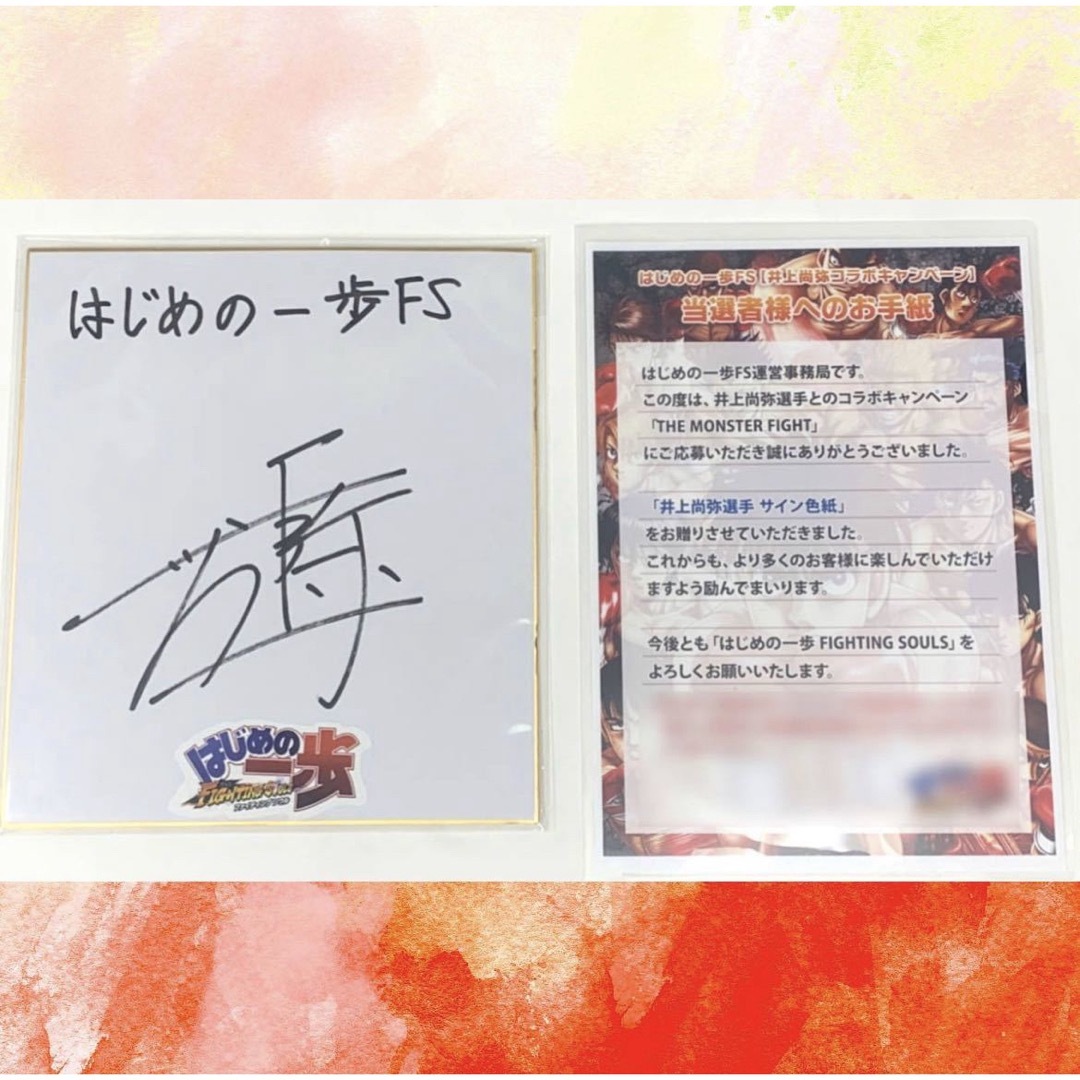 はじめの一歩FS
はじめの
一歩
FIGHTING SOULS
ファイティングソウル
はじめの一歩FS【井上尚弥コラボキャンペーン】
当選者様へのお手紙
はじめの一歩FS運営事務局です。
この度は、井上尚弥選手とのコラボキャンペーン
「THE MONSTER FIGHT」
にご応募いただき誠にありがとうございました。
「井上尚弥選手 サイン色紙」
をお贈りさせていただきました。
これからも、より多くのお客様に楽しんでいただけ
ますよう励んでまいります。
今後とも「はじめの一歩 FIGHTING SOULS」を
よろしくお願いいたします。